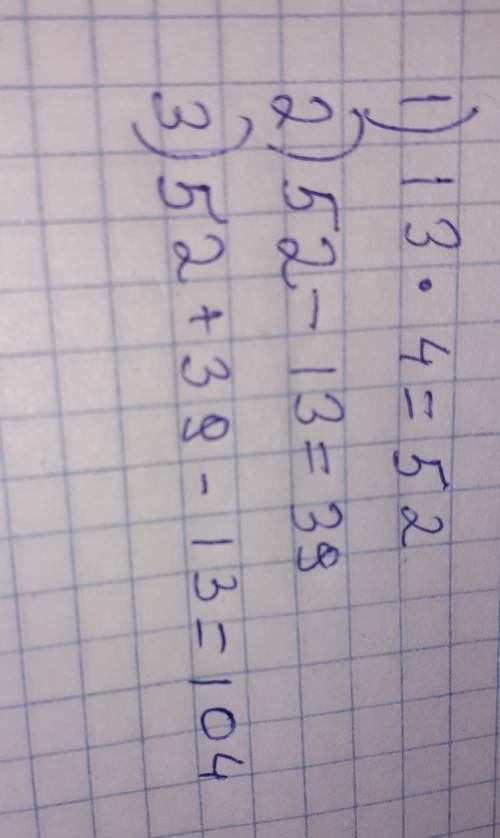 1) 13 · 4 = 52
2) 52 - 13 = 39
3) 52 + 39 - 13 = 104